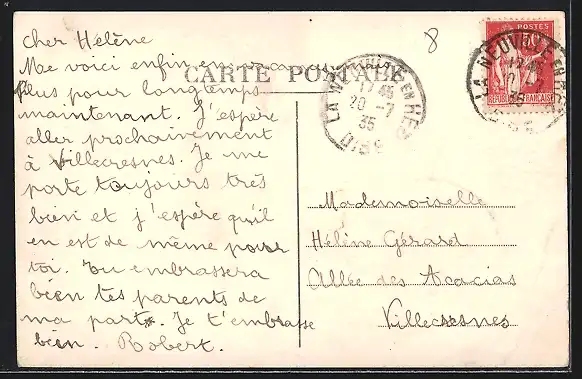 cher Helène
Me voici enfin en vacances
Plus pour longtemps
maintenant. J'espère
aller prochainement
à Villecresnes. Je me
porte toujours très
bien et j'espère qu'il
en est de même pour
toi. Tu embrassera
bien tes parents de
ma part. Je t'embrasse
bien. Robert.
CARTE POSTALE
8
POSTES
50c
REPUBLIQUE FRANÇAISE
LA NEUVILLE EN HEZ
17 45
20 - 7
35
OISE
LA NEUVILLE EN HEZ
Mademoiselle
Hélène Gérard
Allée des Acacias
Villecresnes